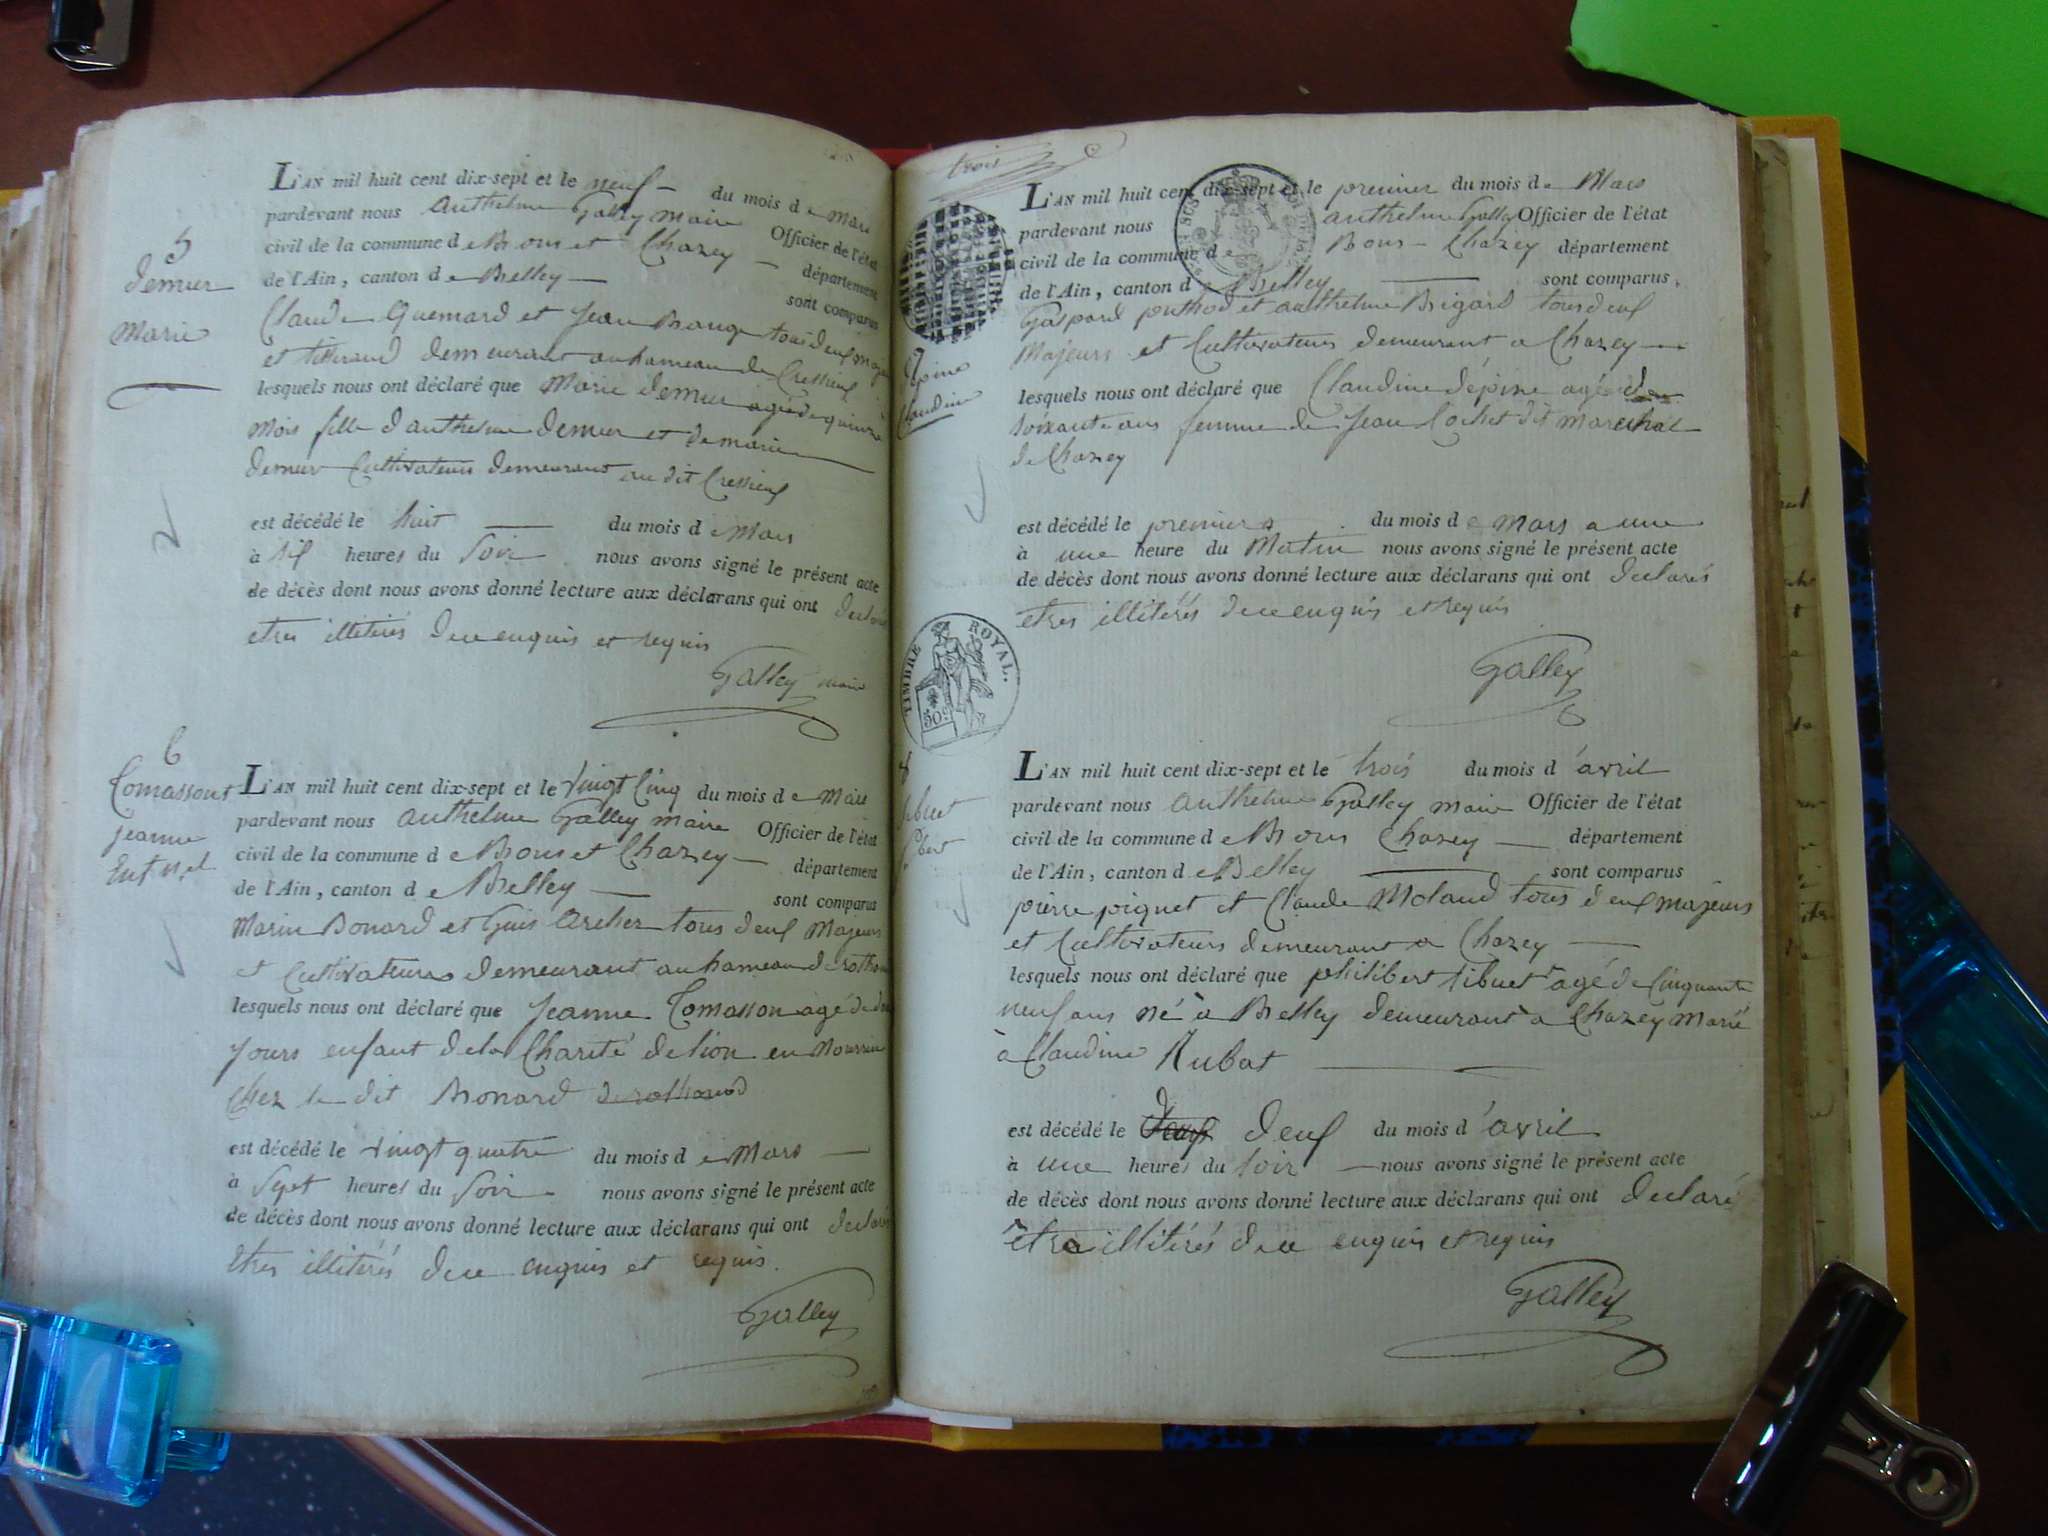 5
demeur
Marie
L'AN mil huit cent dix-sept et le neuf du mois de Mars
pardevant nous Anthelme Galley maire Officier de l'état
civil de la commune de Bons et Chazey département
de l'Ain, canton de Belley sont comparus
Claude Guemard et Jean tous deux
et demeurant au hameau de Cressieux
lesquels nous ont déclaré que Marie demeur agée de quinze
mois fille d'anthelme demeur et de marie
demeur Cultivateurs demeurant au dit Cressieux
est décédé le huit du mois de Mars
à six heures du Soir nous avons signé le présent acte
de décès dont nous avons donné lecture aux déclarans qui ont déclarés
etres illitérés de ce enquis et requis
Galley maire
6
Tomassont
jeanne
Enf n.el
L'AN mil huit cent dix-sept et le vingt Cinq du mois de Mars
pardevant nous Anthelme Galley maire Officier de l'état
civil de la commune de Bons et Chazey département
de l'Ain, canton de Belley sont comparus
Marin Bonard et Guis Archer tous deux Majeurs
et Cultivateurs demeurant au hameau de
lesquels nous ont déclaré que Jeanne Tomasson agé de
jours enfant de la Charité de lion en
Chez le dit Bonard de rothonod
est décédé le vingt quatre du mois de Mars
à Sept heures du Soir nous avons signé le présent acte
de décès dont nous avons donné lecture aux déclarans qui ont déclarés
Etres illitérés de ce enquis et requis.
Galley
trois
7
épine
Claudine
L'AN mil huit cent dix-sept et le premier du mois de Mars
pardevant nous anthelme Galley Officier de l'état
civil de la commune de Bons - Chazey département
de l'Ain, canton de Belley sont comparus,
Gaspard ponthod et anthelme Brigard tous deux
Majeurs et Cultivateurs demeurant a Chazey
lesquels nous ont déclaré que Claudine dépine agée de
soixante ans femme de Jean Cochet dit Marechal
de Chazey
est décédé le premier du mois de Mars a une
à une heure du Matin nous avons signé le présent acte
de décès dont nous avons donné lecture aux déclarans qui ont declarés
etres illitérés de ce enquis et requis
Galley
TIMBRE ROYAL.
50c
8
Sibuet
L'AN mil huit cent dix-sept et le trois du mois d'avril
pardevant nous Anthelme Galley maire Officier de l'état
civil de la commune de Bons Chazey département
de l'Ain, canton de Belley sont comparus
pierre piquet et Claude Moland tous deux majeurs
et Cultivateurs demeurant a Chazey
lesquels nous ont déclaré que philibert sibuet agé de Cinquante
neuf ans né à Belley demeurant à Chazey Marié
à Claudine Rubat
est décédé le deux du mois d'avril
à une heures du soir nous avons signé le présent acte
de décès dont nous avons donné lecture aux déclarans qui ont declaré
être illitérés de ce enquis et requis
Galley